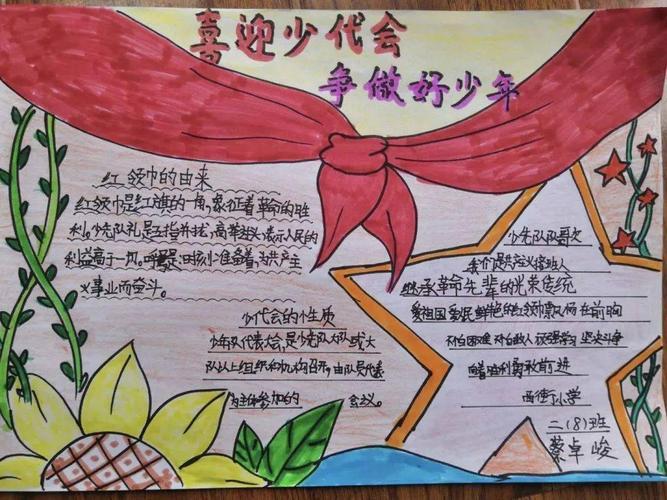 喜迎少代会
争做好少年
红领巾的由来
红领巾是红旗的一角,象征着革命的胜
利。少先队礼是五指并拢,高举过头,表示人民的
利益高于一切。呼号是:时刻准备着,为共产主
义事业而奋斗。
少代会的性质
少年队代表大会,是少先队大队或大
队以上组织和机构召开,由队员代表
为主体参加的 会议。
少先队队哥欠
我们是共产主义接班人
继承革命先辈的光荣传统
爱祖国 爱人民 鲜艳的红领巾飘扬在前胸
不怕困难 不怕敌人 顽强学习 坚决斗争
向着胜利勇敢前进
西街小学
二(8)班
蔡卓峻